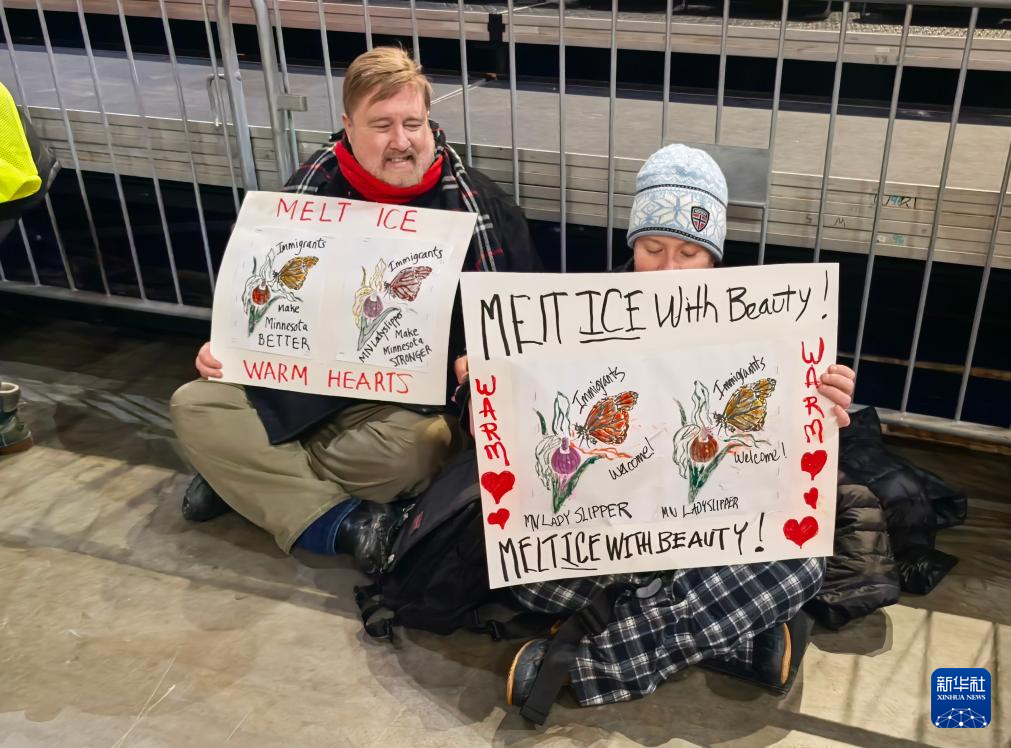 MELT ICE
Immigrants
make
Minnesota
BETTER
Immigrants
MN Ladyslipper
Make
Minnesota
STRONGER
WARM HEARTS
MELT ICE With Beauty!
WARM
Immigrants
Welcome!
MN LADY SLIPPER
Immigrants
Welcome!
MN LADYSLIPPER
WARM
MELT ICE WITH BEAUTY!
新华社
XINHUA NEWS